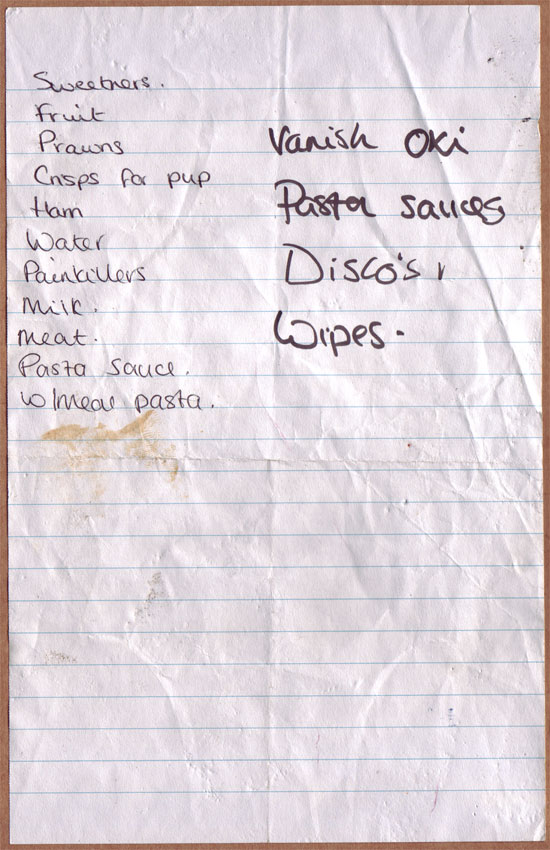 Sweetners.
Fruit
Prawns
Crisps for pup
Ham
Water
Painkillers
Milk.
Meat.
Pasta Sauce.
w/meal pasta.
Vanish Oxi
Pasta sauces
Disco's,
Wipes.